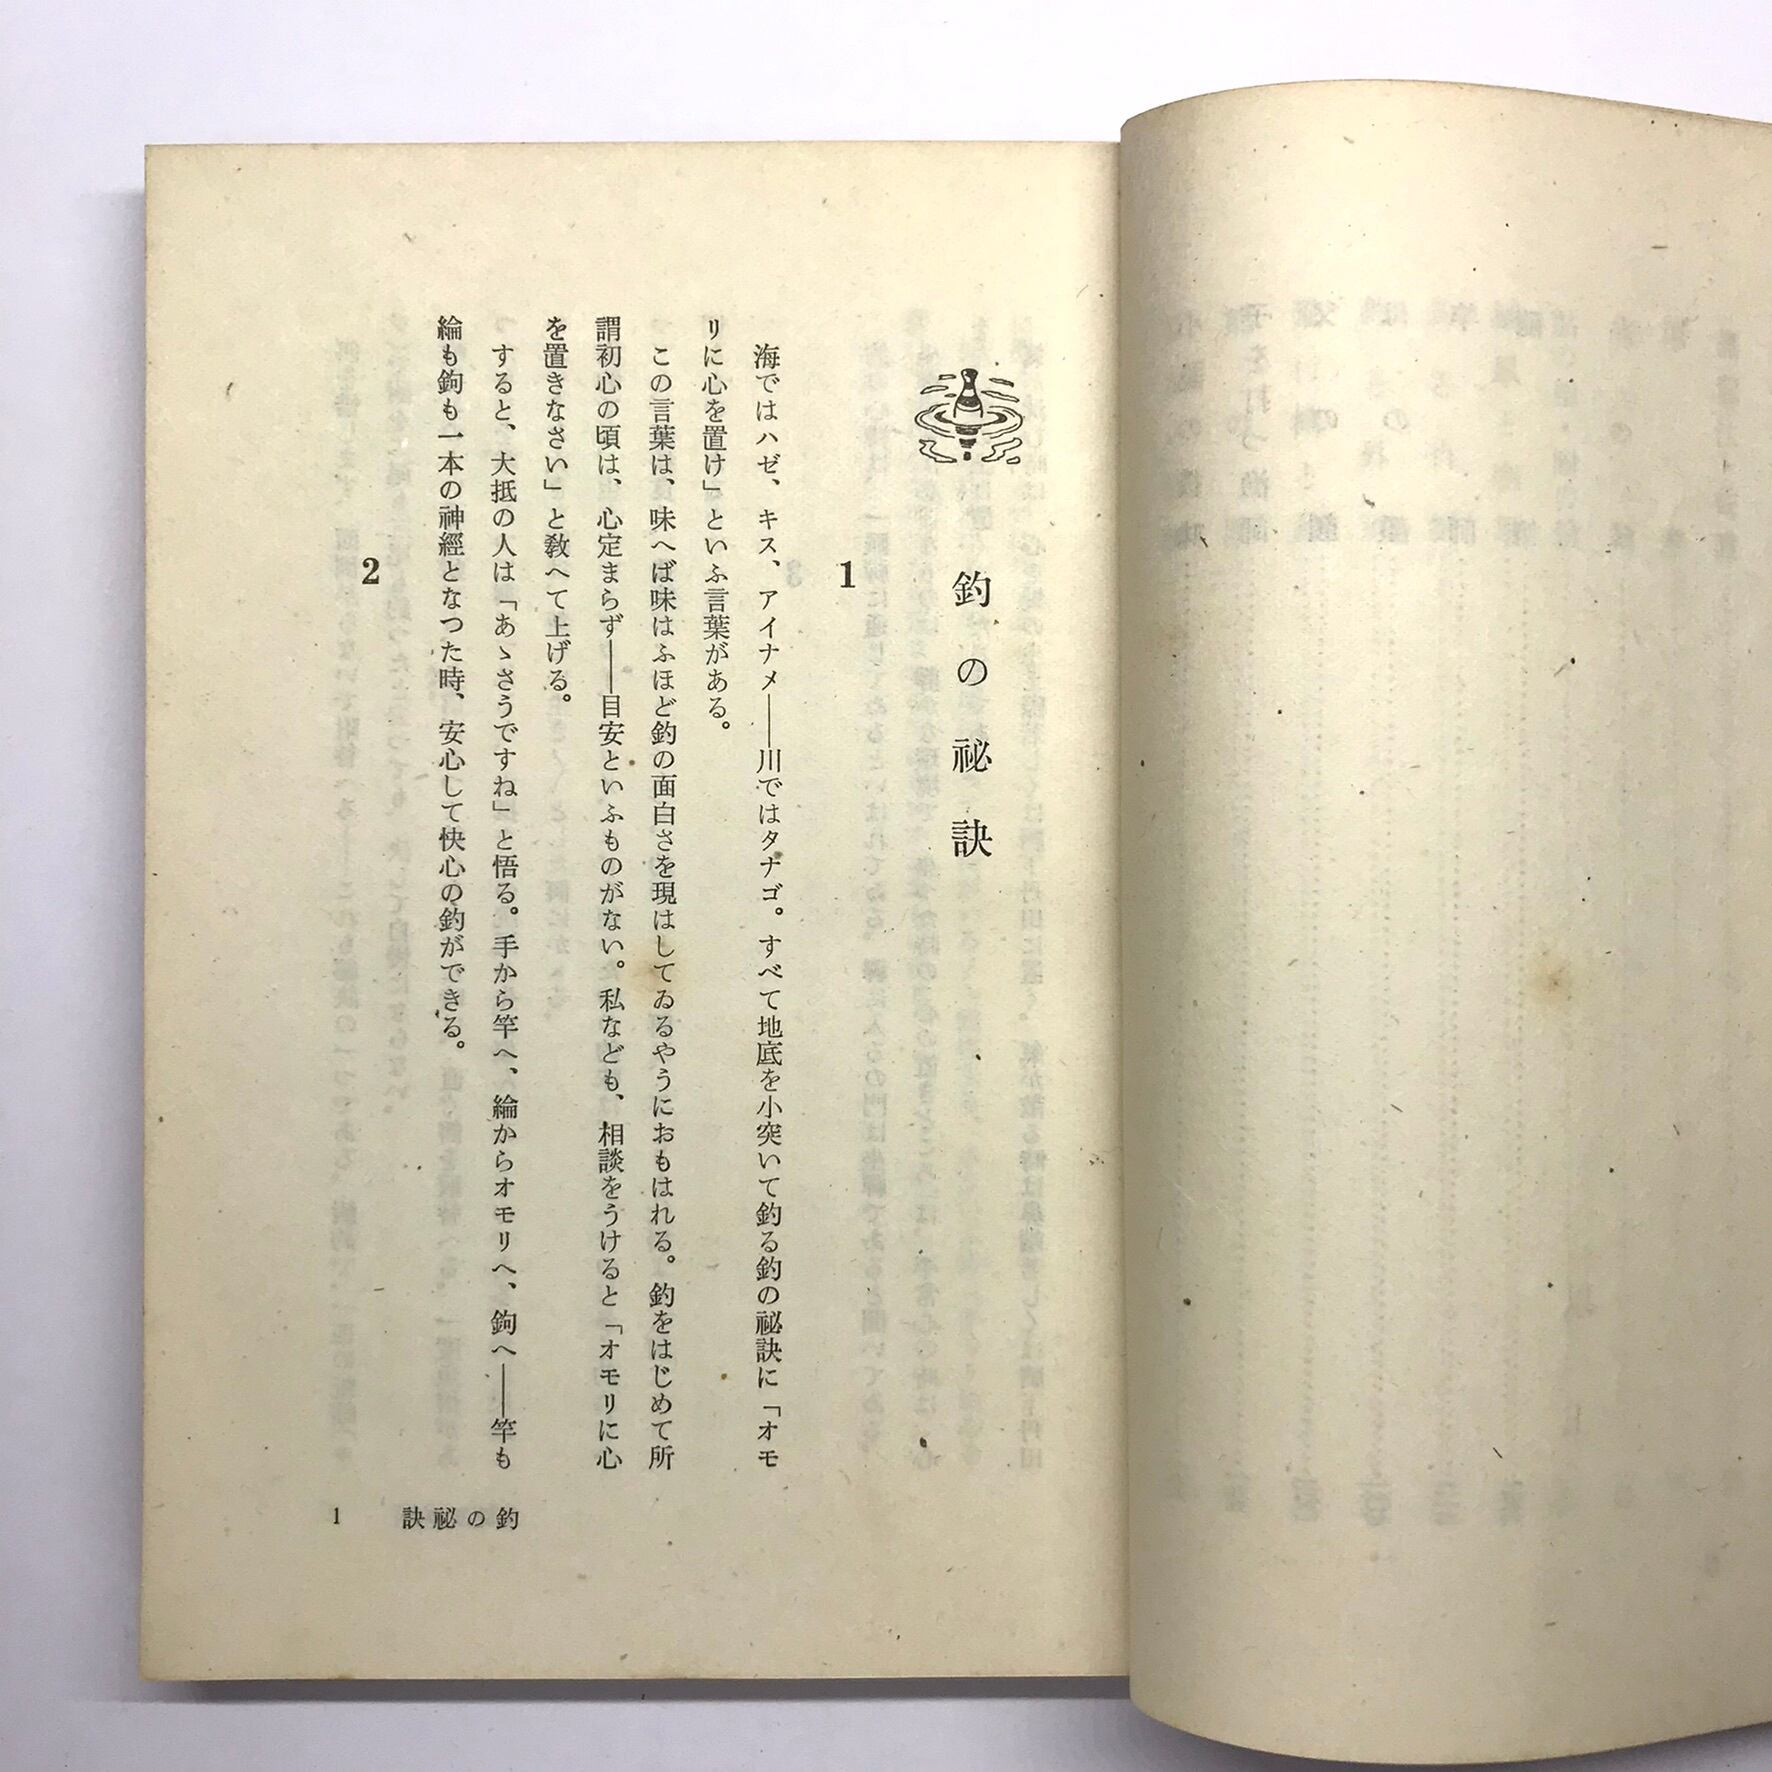 釣の祕訣
1
海ではハゼ、キス、アイナメ――川ではタナゴ。すべて地底を小突いて釣る釣の祕訣に「オモ
リに心を置け」といふ言葉がある。
この言葉は、味へば味はふほど釣の面白さを現はしてゐるやうにおもはれる。釣をはじめて所
謂初心の頃は、心定まらず――目安といふものがない。私なども、相談をうけると「オモリに心
を置きなさい」と敎へて上げる。
すると、大抵の人は「あゝさうですね」と悟る。手から竿へ、綸からオモリへ、鉤へ――竿も
綸も鉤も一本の神經となつた時、安心して快心の釣ができる。
2
訣祕の釣
1